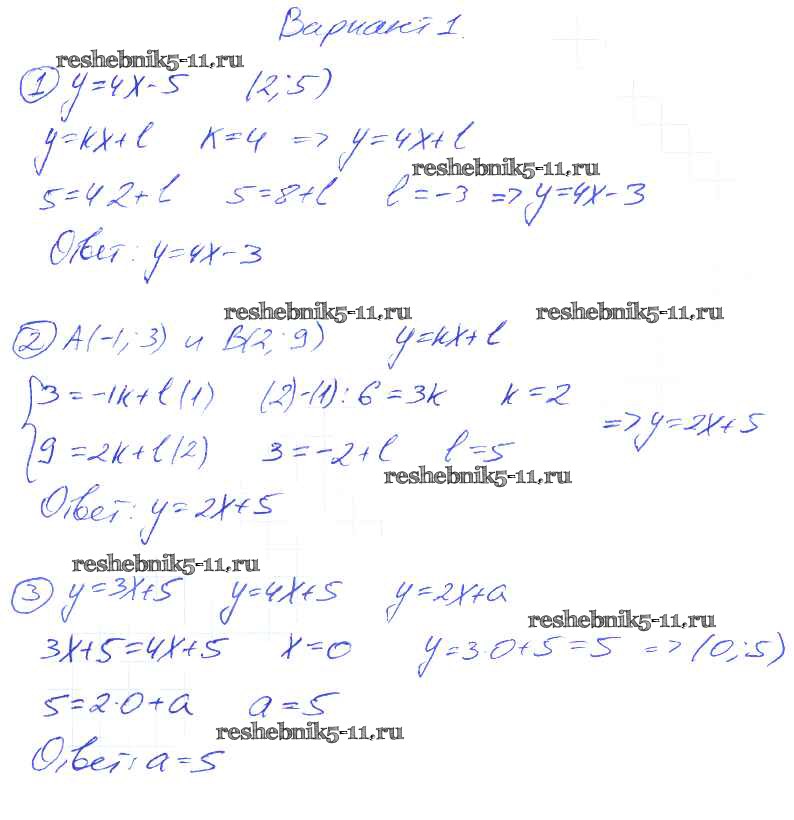 Вариант 1.
reshebnik5-11.ru
① y=4x-5 (2;5)
y=kx+l k=4 => y=4x+l
reshebnik5-11.ru
5=4·2+l 5=8+l l=-3 => y=4x-3
Ответ: y=4x-3
reshebnik5-11.ru reshebnik5-11.ru
② A(-1;3) и B(2;9) y=kx+l
{3=-1k+l (1) (2)-(1): 6=3k k=2
=> y=2x+5
9=2k+l (2) 3=-2+l l=5
reshebnik5-11.ru
Ответ: y=2x+5
reshebnik5-11.ru
③ y=3x+5 y=4x+5 y=2x+a
reshebnik5-11.ru
3x+5=4x+5 x=0 y=3·0+5=5 => (0;5)
5=2·0+a a=5
reshebnik5-11.ru
Ответ: a=5